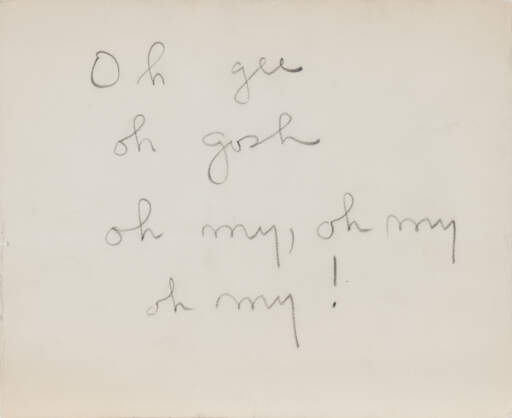 Oh gee
oh gosh
oh my, oh my
oh my!